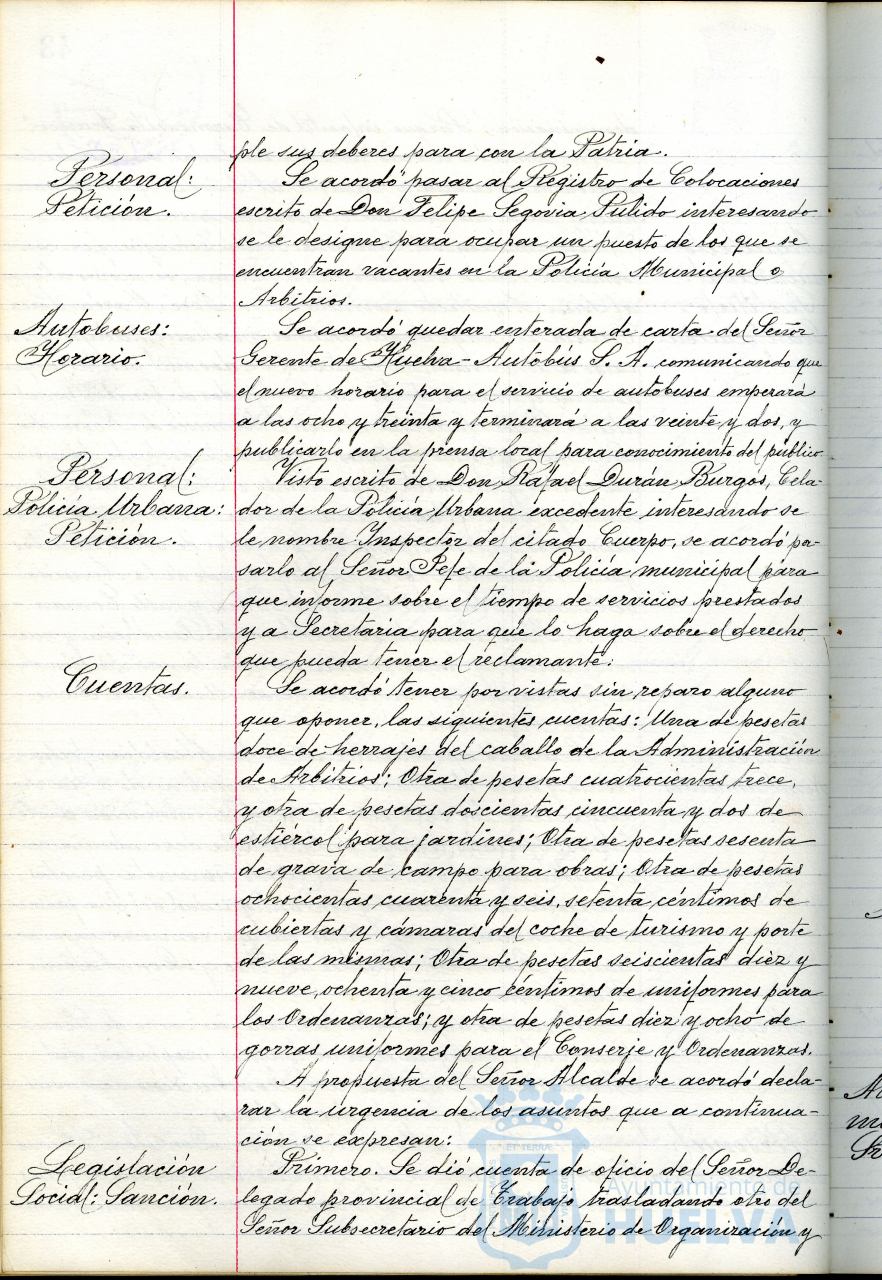 ple sus deberes para con la Patria.
Personal:
Petición.
Se acordó pasar al Registro de Colocaciones
escrito de Don Felipe Segovia Pulido interesando
se le designe para ocupar un puesto de los que se
encuentran vacantes en la Policía Municipal o
Arbitrios.
Autobuses:
Horario.
Se acordó quedar enterada de carta del Señor
Gerente de Huelva-Autobús S. A. comunicando que
el nuevo horario para el servicio de autobuses emperará
a las ocho y treinta y terminará a las veinte y dos, y
publicarlo en la prensa local para conocimiento del público
Personal:
Policía Urbana:
Petición.
Visto escrito de Don Rafael Durán Burgos, Cela-
dor de la Policía Urbana excedente interesando se
le nombre Inspector del citado Cuerpo, se acordó pa-
sarlo al Señor Jefe de la Policía municipal para
que informe sobre el tiempo de servicios prestados
y a Secretaria para que lo haga sobre el derecho
que pueda tener el reclamante.
Cuentas.
Se acordó tener por vistas sin reparo alguno
que oponer, las siguientes cuentas: Una de pesetas
doce de herrajes del caballo de la Administración
de Arbitrios; Otra de pesetas cuatrocientas trece,
y otra de pesetas doscientas cincuenta y dos de
estiércol para jardines; Otra de pesetas sesenta
de grava de campo para obras; Otra de pesetas
ochocientas cuarenta y seis, setenta céntimos de
cubiertas y cámaras del coche de turismo y porte
de las mismas; Otra de pesetas seiscientas diez y
nueve, ochenta y cinco céntimos de uniformes para
los Ordenanzas; y otra de pesetas diez y ocho de
gorras uniformes para el Conserje y Ordenanzas.
A propuesta del Señor Alcalde se acordó decla-
rar la urgencia de los asuntos que a continua-
ción se expresan:
Legislación
Social: Sanción.
Primero. Se dió cuenta de oficio del Señor De-
legado provincial de Trabajo trasladando otro del
Señor Subsecretario del Ministerio de Organización y
Ayuntamiento de
HUELVA